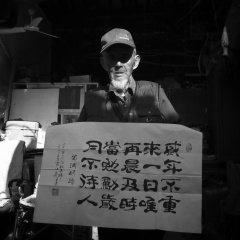 盛年不重
来一日難
再晨及時
當勉勵歲
月不待人